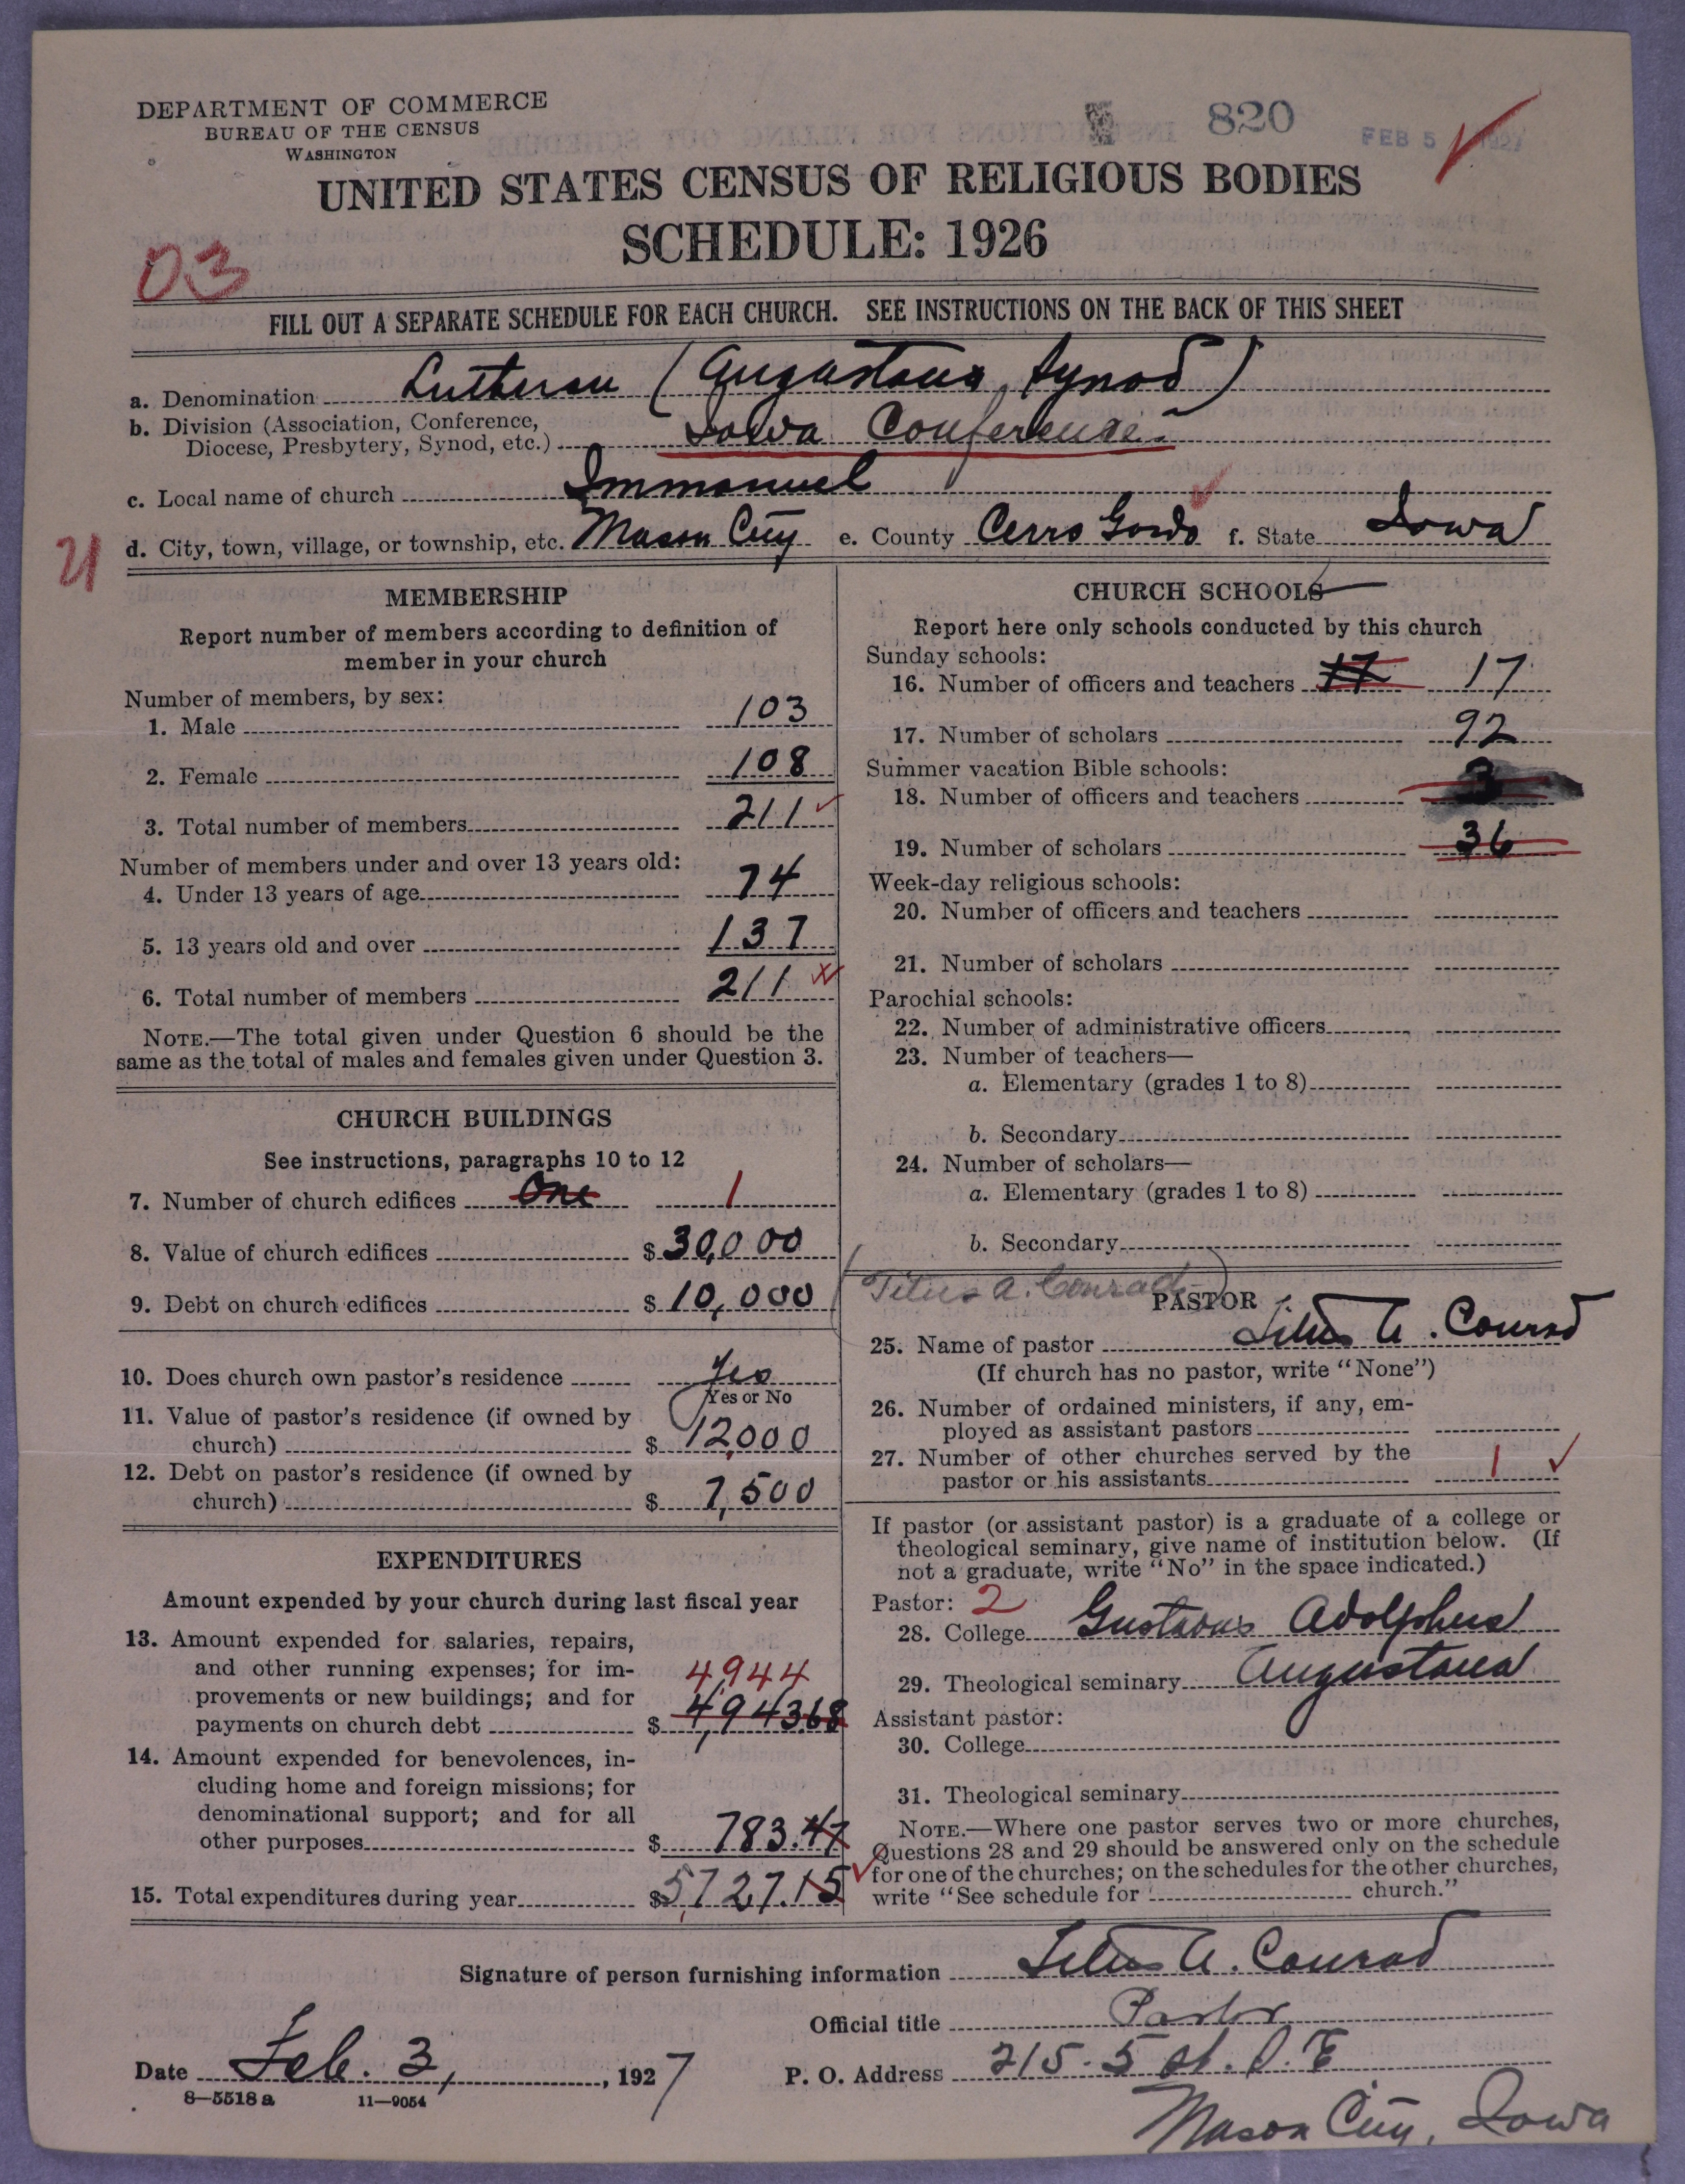 DEPARTMENT OF COMMERCE
BUREAU OF THE CENSUS
WASHINGTON
820
FEB 5 1927
UNITED STATES CENSUS OF RELIGIOUS BODIES
SCHEDULE: 1926
03
FILL OUT A SEPARATE SCHEDULE FOR EACH CHURCH. SEE INSTRUCTIONS ON THE BACK OF THIS SHEET
a. Denomination Lutheran (Augustana Synod)
b. Division (Association, Conference,
Diocese, Presbytery, Synod, etc.) Iowa Conference
c. Local name of church Immanuel
d. City, town, village, or township, etc. Mason City e. County Cerro Gordo f. State Iowa
MEMBERSHIP
Report number of members according to definition of
member in your church
Number of members, by sex:
1. Male 103
2. Female 108
3. Total number of members 211
Number of members under and over 13 years old:
4. Under 13 years of age 74
5. 13 years old and over 137
6. Total number of members 211
NOTE.—The total given under Question 6 should be the
same as the total of males and females given under Question 3.
CHURCH BUILDINGS
See instructions, paragraphs 10 to 12
7. Number of church edifices One 1
8. Value of church edifices $ 30,000
9. Debt on church edifices $ 10,000
10. Does church own pastor's residence Yes
Yes or No
11. Value of pastor's residence (if owned by
church) $ 12,000
12. Debt on pastor's residence (if owned by
church) $ 7,500
EXPENDITURES
Amount expended by your church during last fiscal year
13. Amount expended for salaries, repairs,
and other running expenses; for im-
provements or new buildings; and for 4944
payments on church debt $ 4,943.68
14. Amount expended for benevolences, in-
cluding home and foreign missions; for
denominational support; and for all
other purposes $ 783.47
15. Total expenditures during year $ 5,727.15
CHURCH SCHOOLS
Report here only schools conducted by this church
Sunday schools:
16. Number of officers and teachers 17 17
17. Number of scholars 92
Summer vacation Bible schools:
18. Number of officers and teachers 3
19. Number of scholars 36
Week-day religious schools:
20. Number of officers and teachers
21. Number of scholars
Parochial schools:
22. Number of administrative officers
23. Number of teachers—
a. Elementary (grades 1 to 8)
b. Secondary
24. Number of scholars—
a. Elementary (grades 1 to 8)
b. Secondary
Titus A. Conrad
PASTOR
25. Name of pastor Titus A. Conrad
(If church has no pastor, write "None")
26. Number of ordained ministers, if any, em-
ployed as assistant pastors
27. Number of other churches served by the
pastor or his assistants 1
If pastor (or assistant pastor) is a graduate of a college or
theological seminary, give name of institution below. (If
not a graduate, write "No" in the space indicated.)
Pastor: 2
28. College Gustavus Adolphus
29. Theological seminary Augustana
Assistant pastor:
30. College
31. Theological seminary
NOTE.—Where one pastor serves two or more churches,
Questions 28 and 29 should be answered only on the schedule
for one of the churches; on the schedules for the other churches,
write "See schedule for church."
Signature of person furnishing information Titus A. Conrad
Official title Pastor
Date Feb. 3, 1927 P. O. Address 215 - 5 St. S. E.
Mason City, Iowa
8—5518 a 11—9054